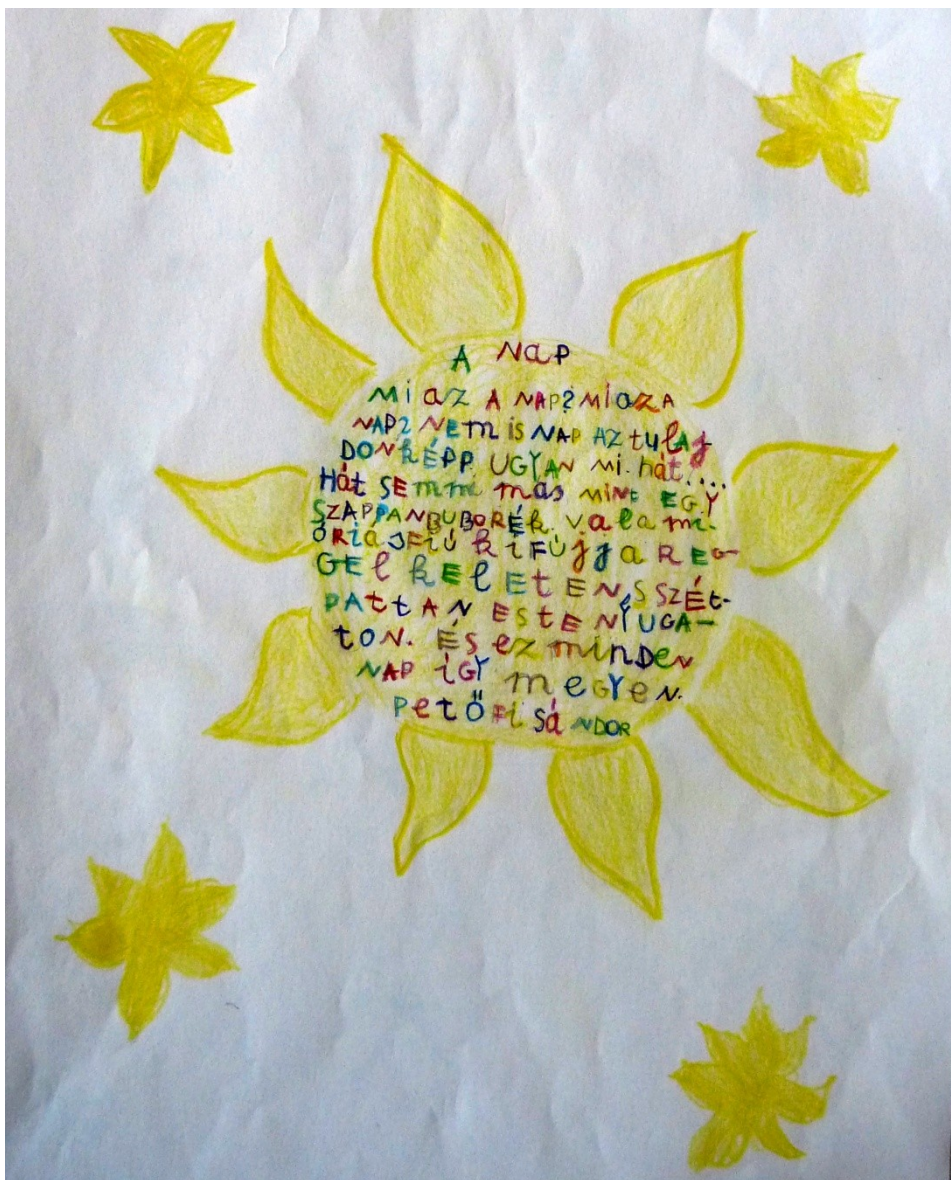 A NaP
Mi az A NAP? Mi az A
NAP? NEm iS NAP AZ tulaj-
DONkÉPP. UGYAN Mi. hát....
Hát SEmmi más MINt EGY
SZAPPANBUBORÉk. Valami-
ÓRiÁSFiÚ kiFÚjja REG-
GEl KElEtEN, S SZÉt-
PAttAN EStE NYUGA-
tON. ÉS ez minDeN
NAP ÍGY mEGYEN.
PetŐFi SáNDOR